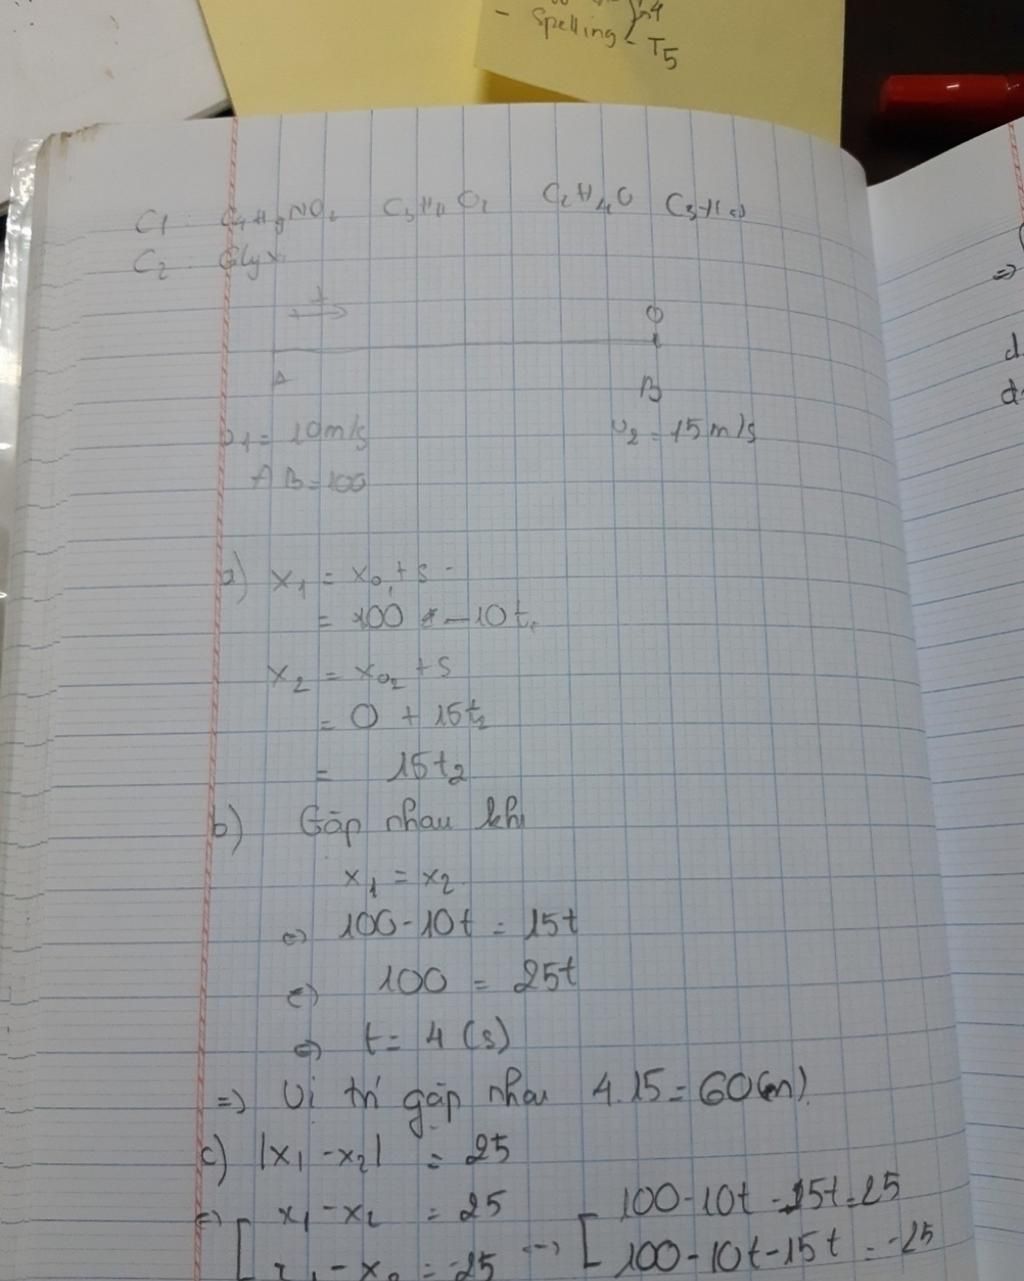 - Spelling - T5
C1 : C4H9NO2
C2 Gly
O
A B
v1 = 10m/s v2 = 15m/s
AB = 100
a) x1 = x01 + s
= 100 - 10t1
x2 = x02 + s
= 0 + 15t2
= 15t2
b) Gặp nhau khi
x1 = x2
⇔ 100 - 10t = 15t
⇔ 100 = 25t
⇔ t = 4 (s)
=> Vị trí gặp nhau 4.15 = 60(m)
c) |x1 - x2| = 25
⇔ [ x1 - x2 = 25 ⇔ [ 100 - 10t - 15t = 25
x1 - x2 = -25 100 - 10t - 15t = -25
=>
d
d